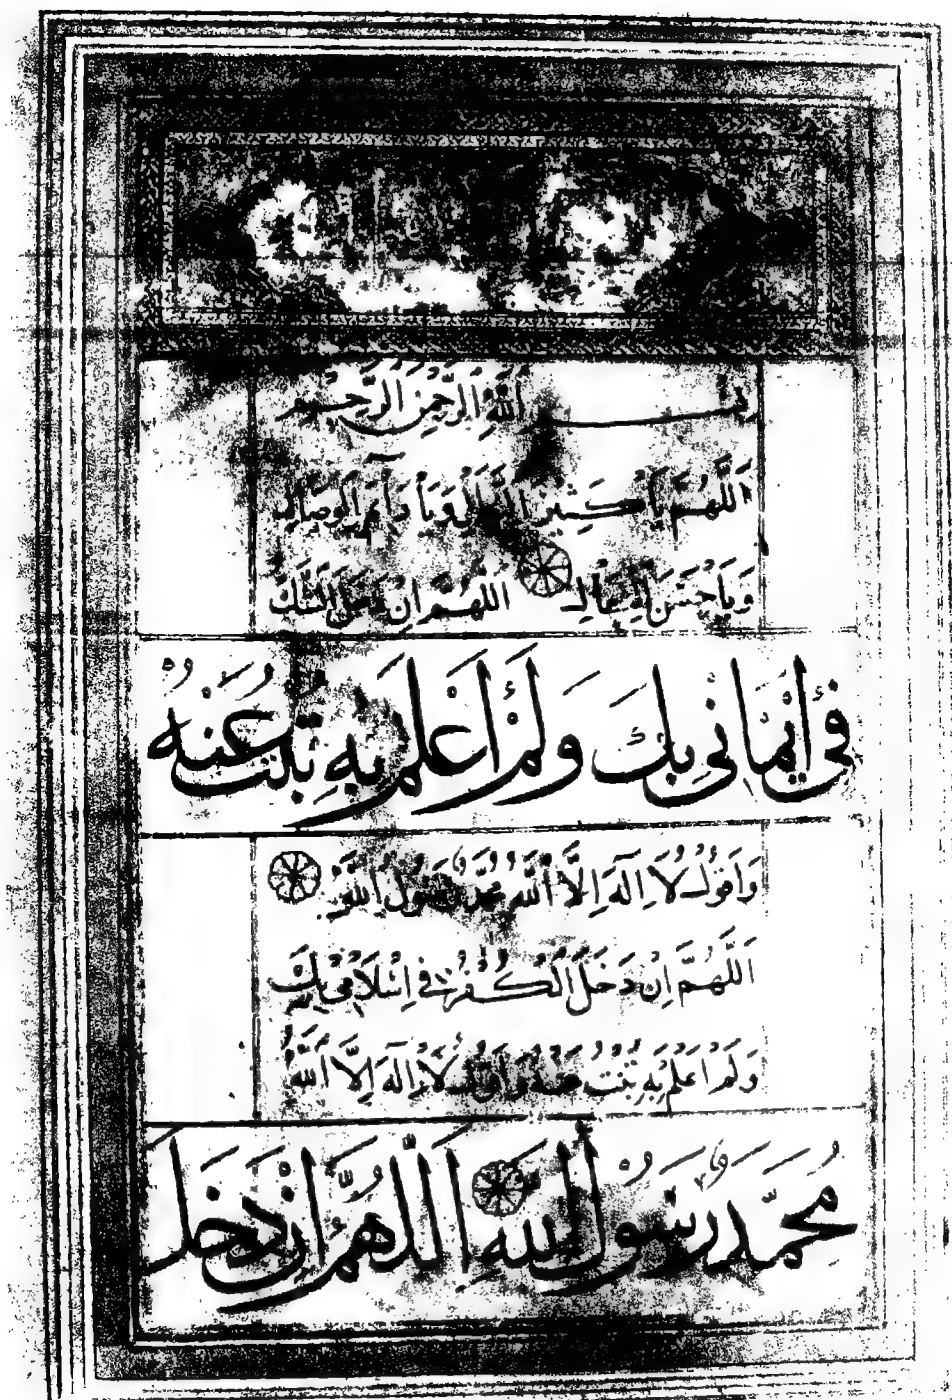 بِسْمِ اللَّهِ الرَّحْمَٰنِ الرَّحِيمِ
اَللَّهُمَّ يَا كَثِيرَ النَّوَالِ وَيَا دَآئِمَ الْوِصَالِ
وَيَا حَسَنَ الْفِعَالِ اَللَّهُمَّ اِنْ دَخَلَ الشَّكُّ
فِى اِيْمَانِى بِكَ وَلَمْ اَعْلَمْ بِهِ تُبْتُ عَنْهُ
وَاَقُولُ لَا اِلٰهَ اِلَّا اللَّهُ مُحَمَّدٌ رَسُولُ اللَّهِ
اَللَّهُمَّ اِنْ دَخَلَ الْكُفْرُ فِى اِسْلَامِى بِكَ
وَلَمْ اَعْلَمْ بِهِ تُبْتُ عَنْهُ وَاَقُولُ لَا اِلٰهَ اِلَّا اللَّهُ
مُحَمَّدٌ رَسُولُ اللَّهِ اَللَّهُمَّ اِنْ دَخَلَ